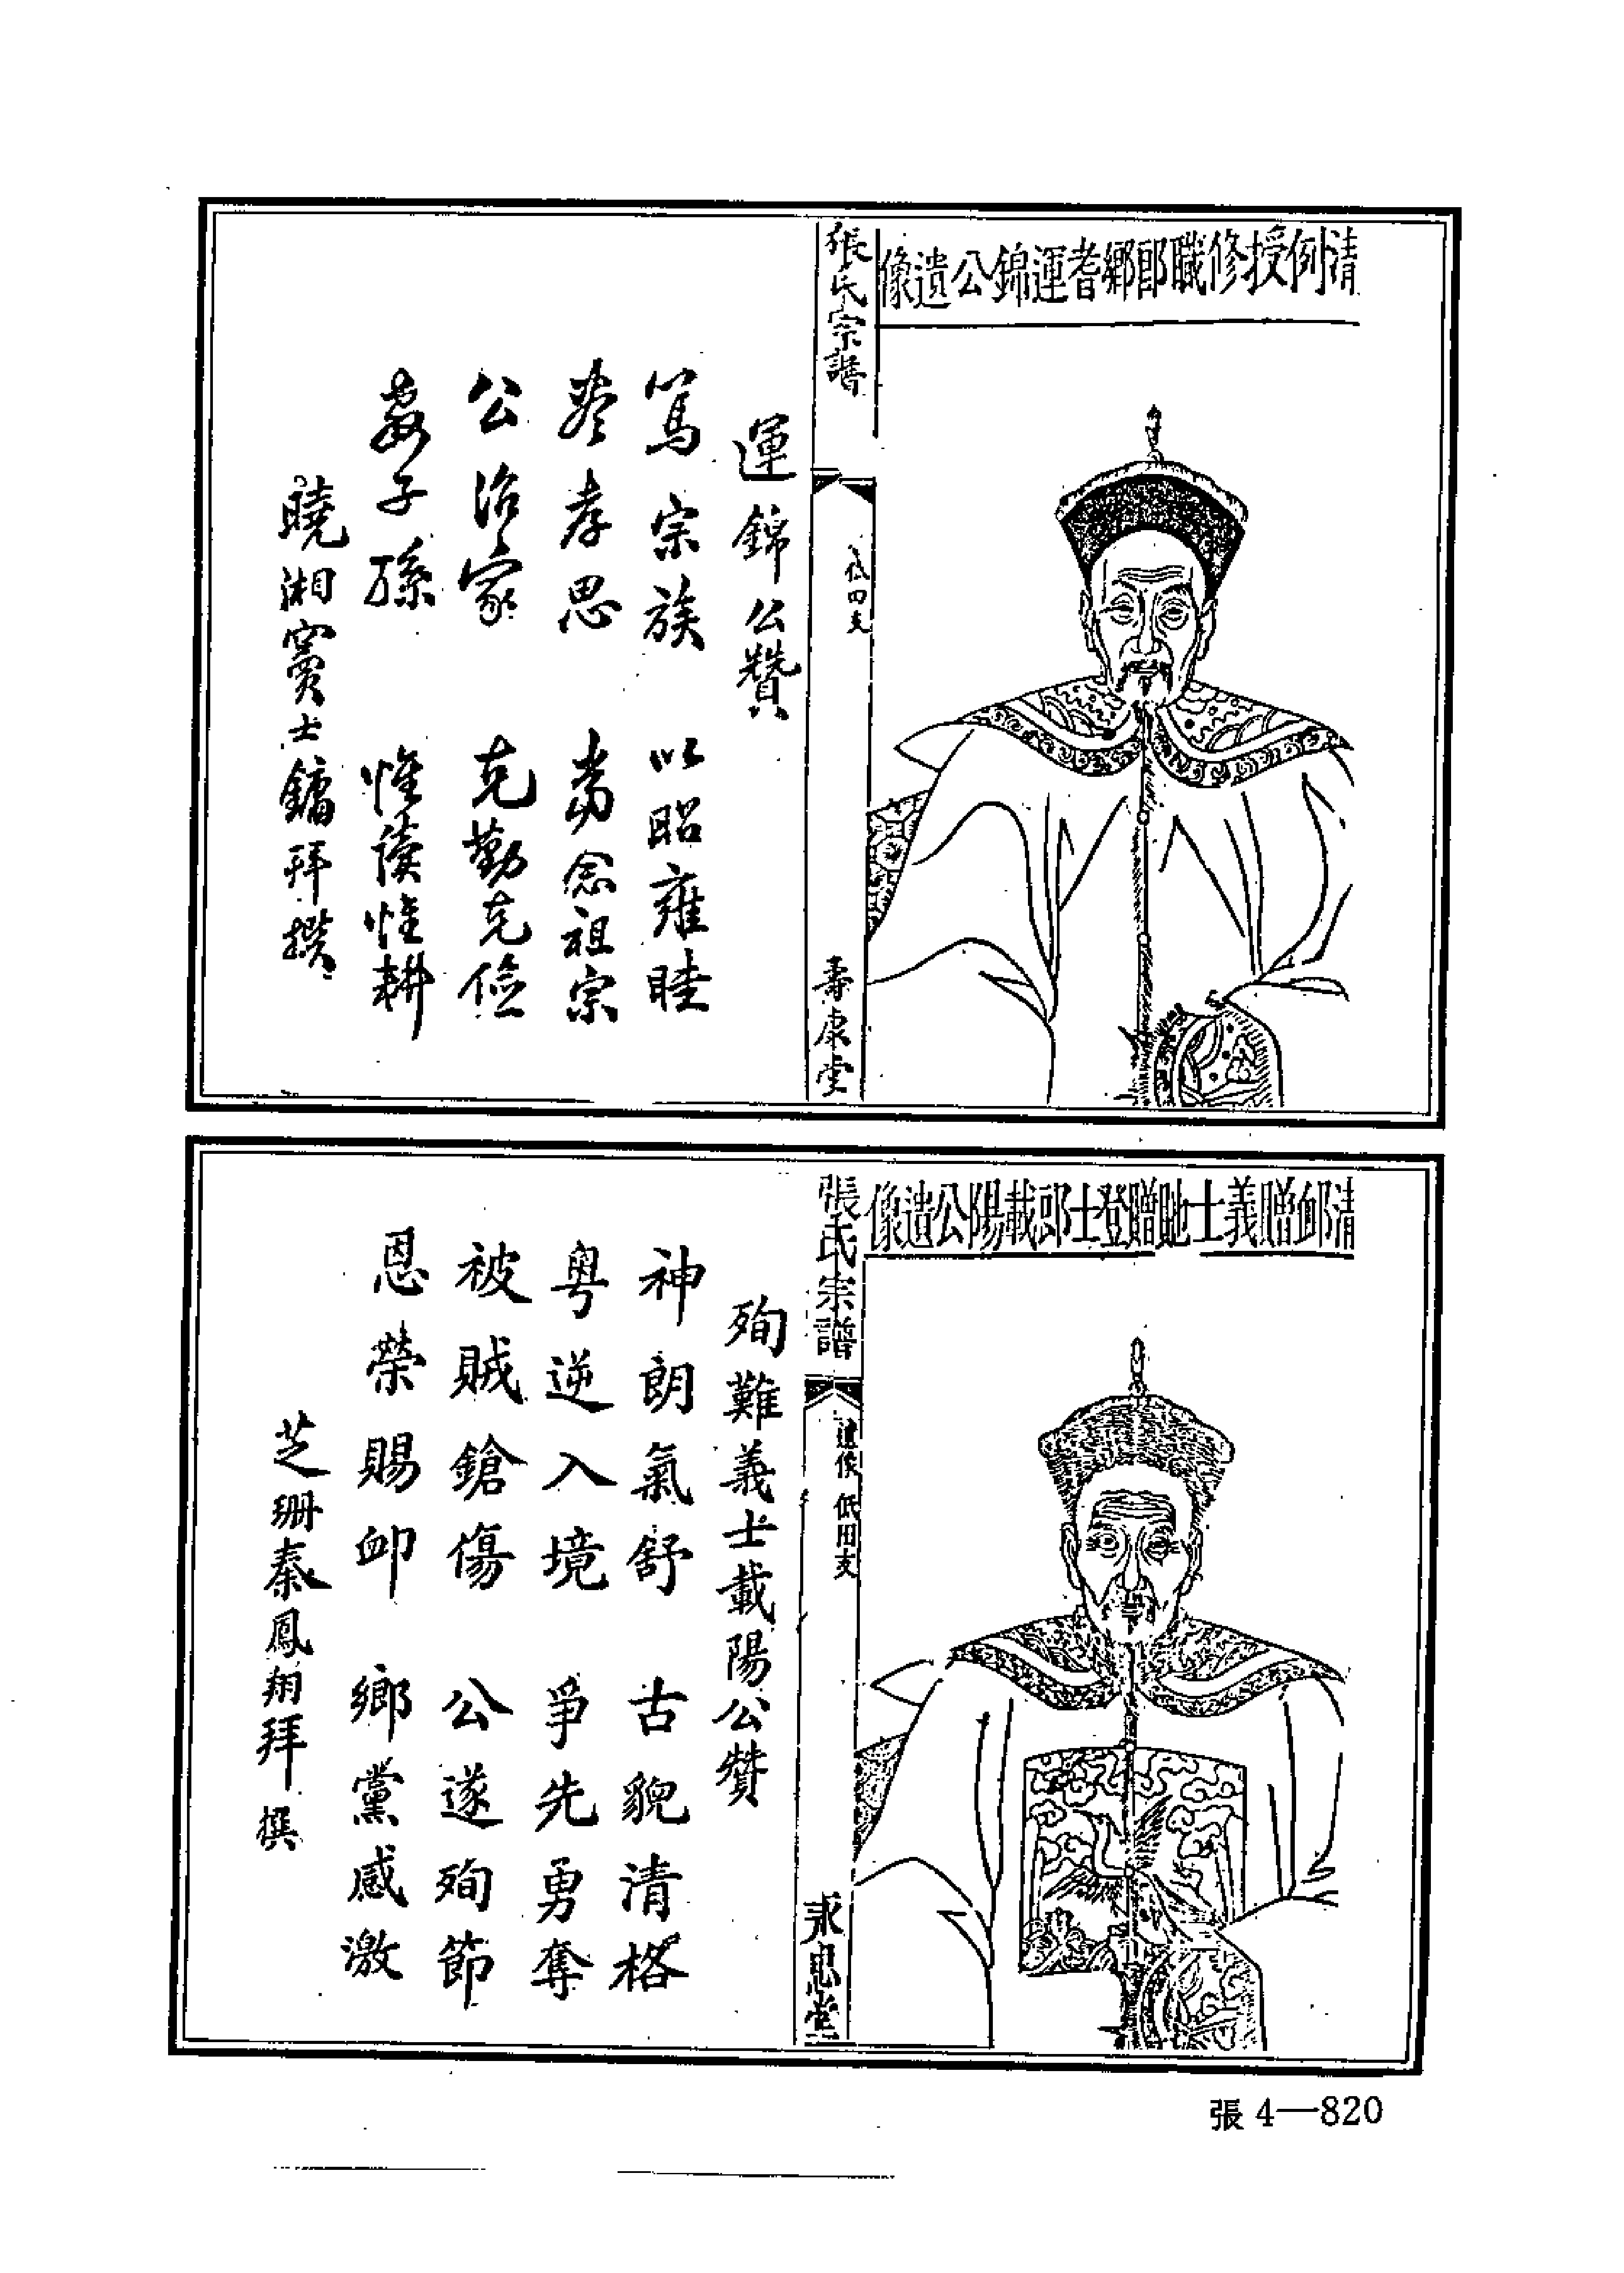 清例授修職郎鄉耆運錦公遺像
張氏宗譜
低四支
壽康堂
運錦公贊
篤宗族 以昭雍睦
孝思 當念祖宗
公治家 克勤克儉
子孫 惟讀惟耕
曉湘竇士鏞拜撰
清卹贈義士貤贈登士郎載陽公遺像
張氏宗譜
遺像 低田支
永思堂
殉難義士載陽公贊
神朗氣舒 古貌清格
粵逆入境 爭先勇奪
被賊鎗傷 公遂殉節
恩榮賜卹 鄉黨感激
芝珊秦鳳翔拜撰
張4—820